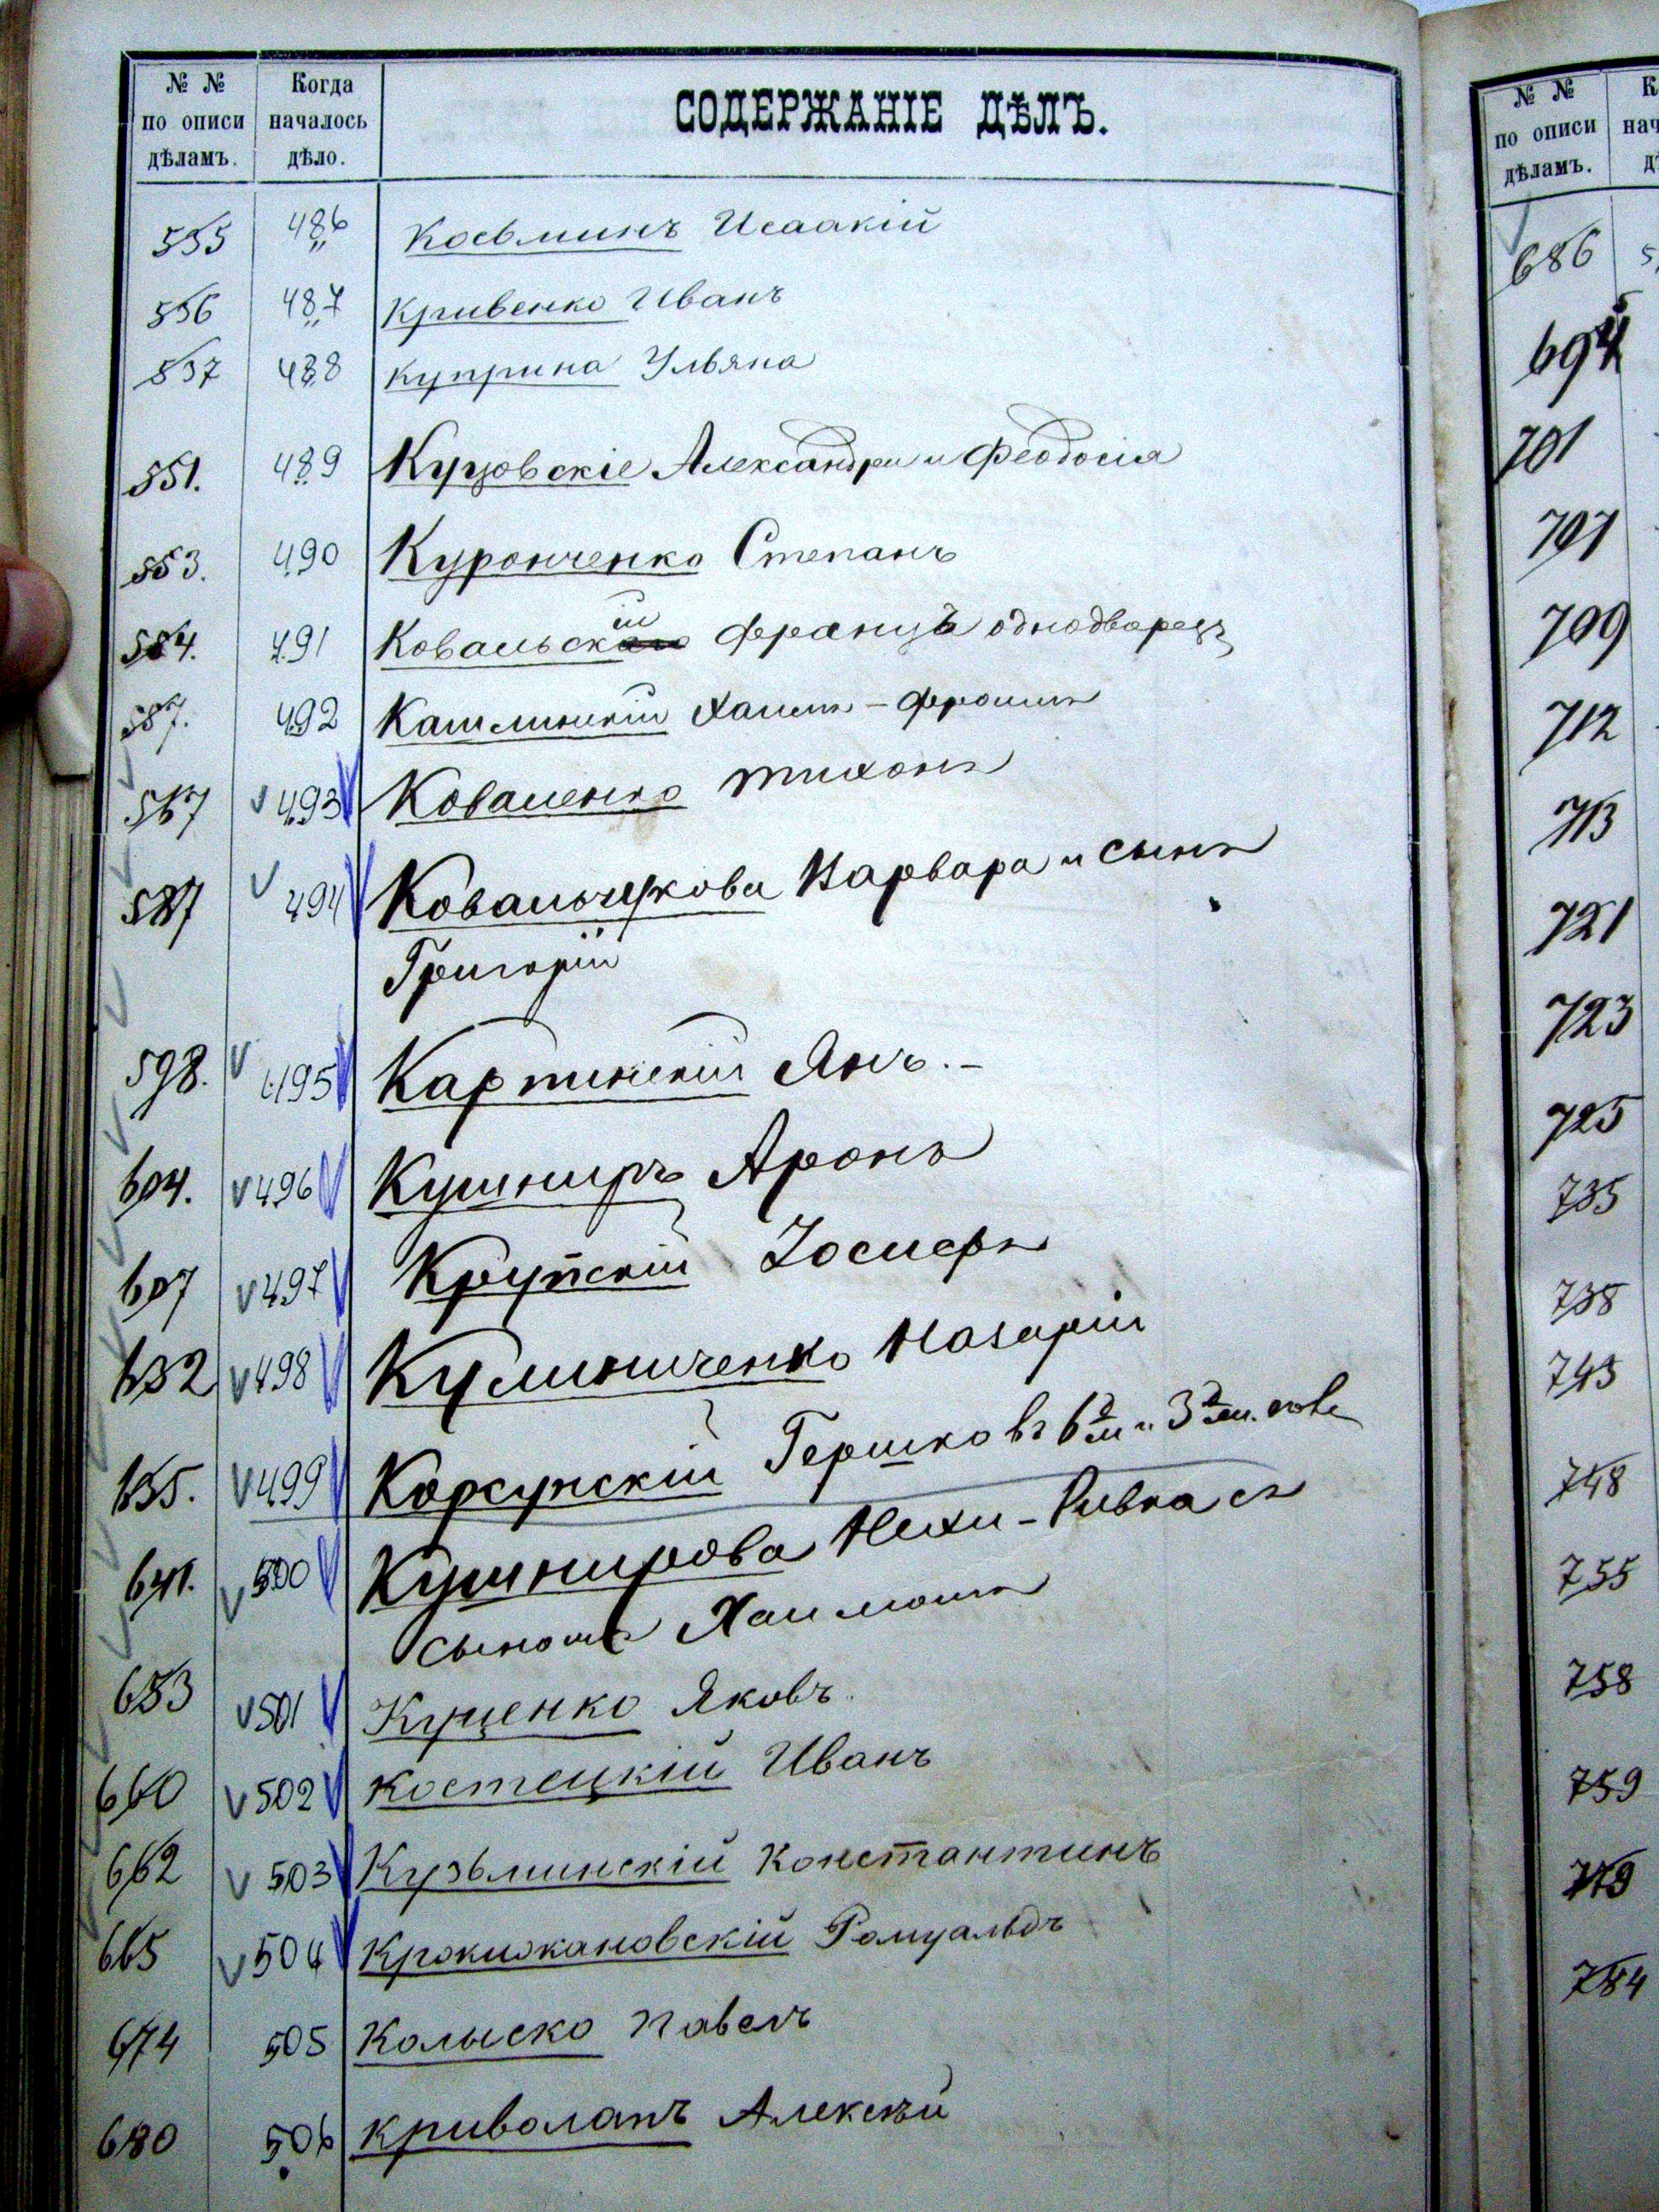 № №
по описи
дѣламъ.
Когда
началось
дѣло.
СОДЕРЖАНІЕ ДѢЛЪ.
535 486 Косьминъ Исаакій
536 487 Кривенко Иванъ
537 488 Куприна Ульяна
551. 489 Куцовскіе Александръ и Феодосія
553. 490 Куронченко Степанъ
584. 491 Ковальскій Францъ однодворецъ
587. 492 Кашлинскій Хаимъ-Фроимъ
567 493 Коваленко Тихонъ
587 494 Ковальчукова Варвара и сынъ
Григорій
598. 495 Карпинскій Янъ.-
604. 496 Кушниръ Аронъ
607 497 Крупскій Іосифъ
632 498 Кулиниченко Назарій
635. 499 Корсунскій Гершко въ 6м и 3м
641. 500 Кушнирова Нехи-Ривка съ
сыномъ Хаимомъ
653 501 Куценко Яковъ
660 502 Костецкій Иванъ
662 503 Кузьминскій Константинъ
665 504 Кржижановскій Ромуальдъ
674 505 Колыско Павелъ
680 506 Криволапъ Алексѣй
№ №
по описи
дѣламъ.
К
нач
д
686
694
701
707
709
712
713
721
723
725
735
738
743
748
755
758
759
779
784